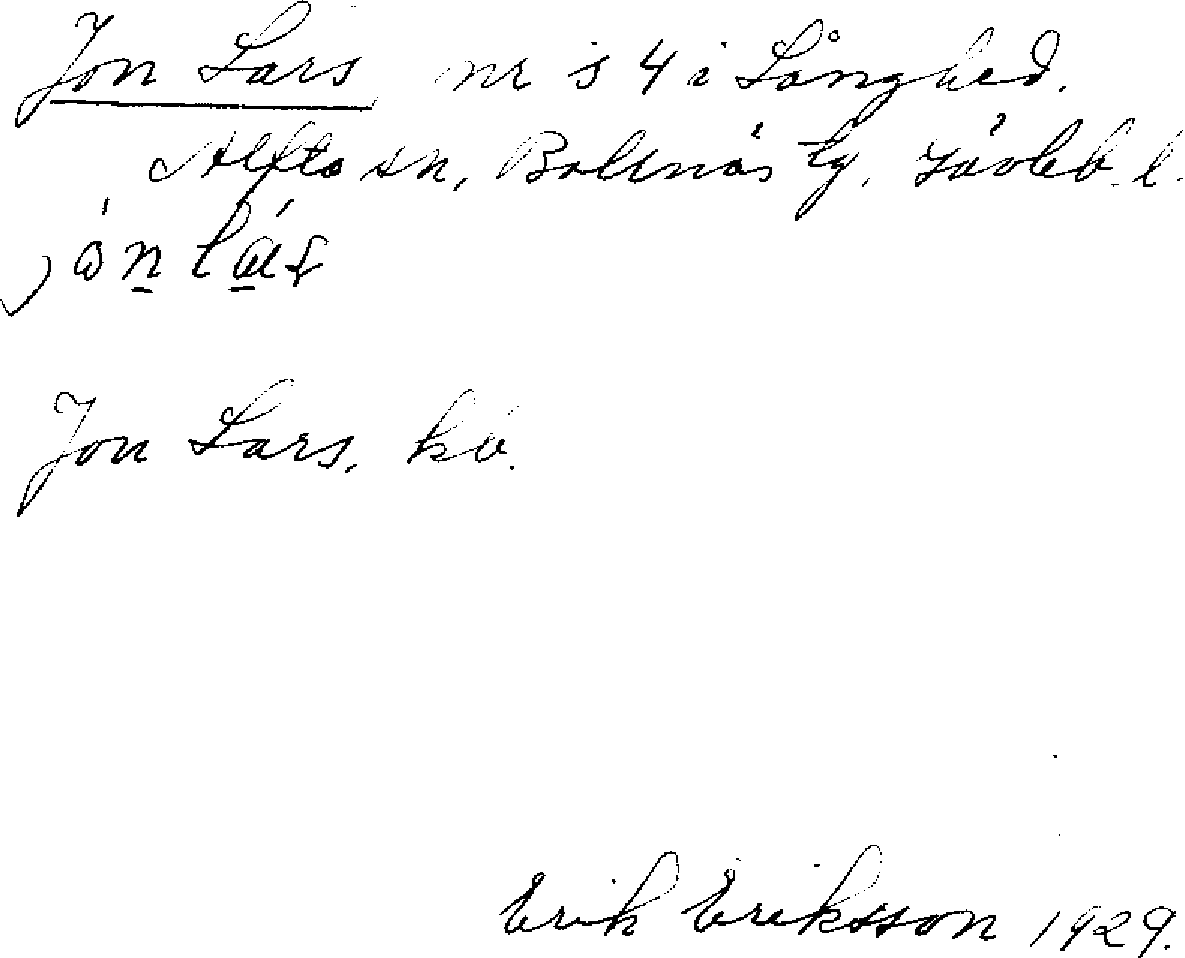 Jon Lars nr 54 i Långhed.
Alfta sn, Bollnäs tg, Gävleb. l.
Jon Lars, kö.
Erik Eriksson 1929.